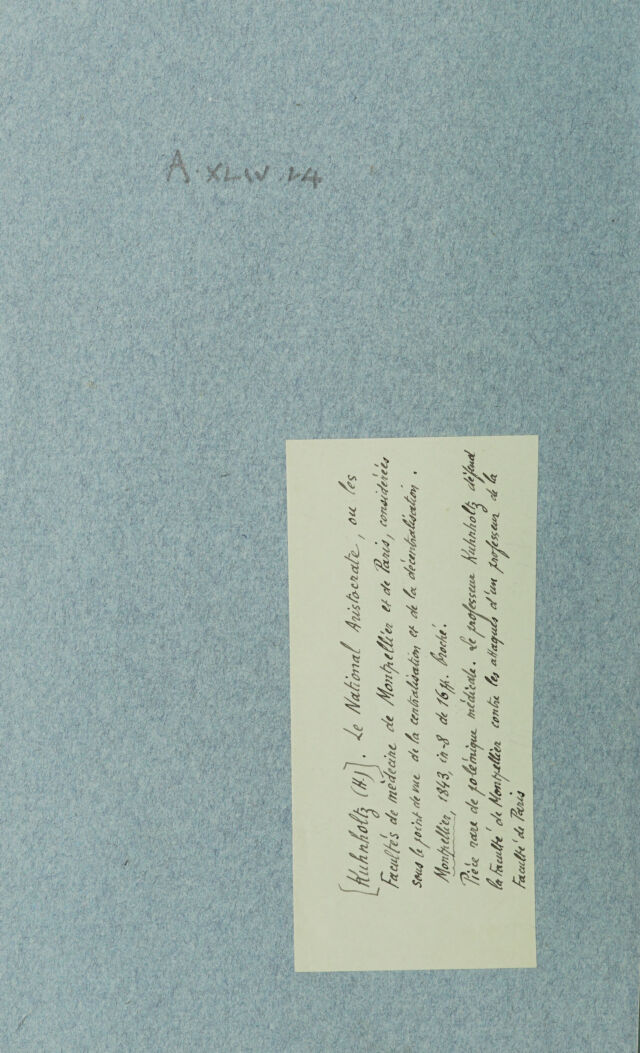 A. XLIV 24
[Kuhnholtz (H.)]. Le National Aristocrate, ou les
Facultés de médecine de Montpellier et de Paris, considérées
sous le point de vue de la centralisation et de la décentralisation.
Montpellier, 1843, in-8 de 16 pp. broché.
Pièce rare de polémique médicale. Le professeur Kuhnholtz défend
la Faculté de Montpellier contre les attaques d'un professeur de la
Faculté de Paris